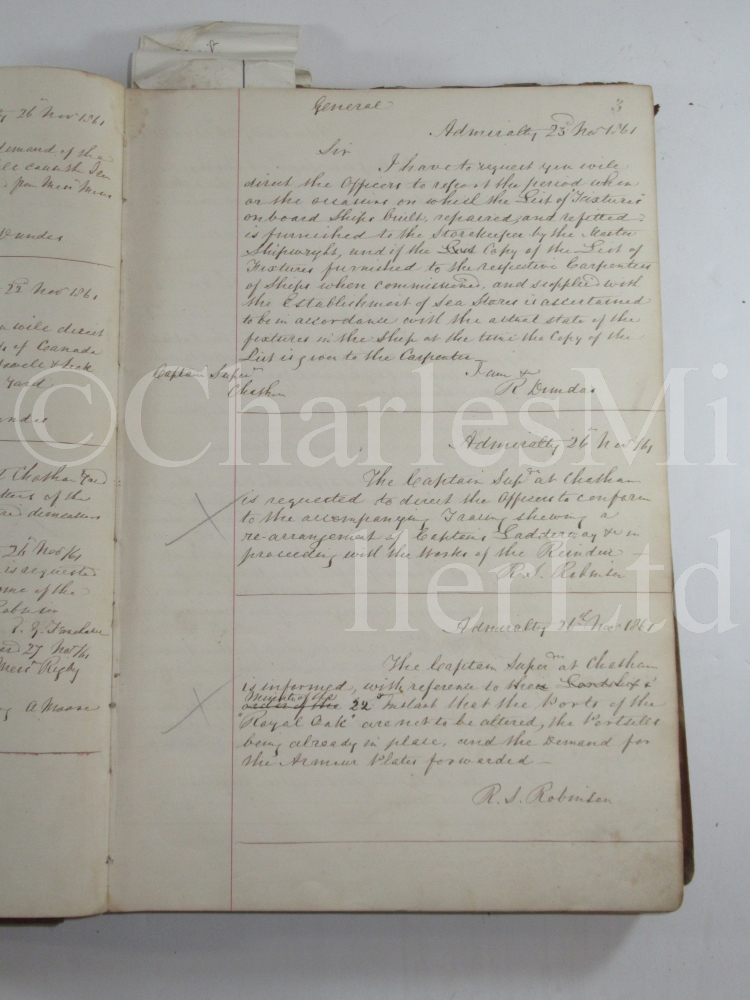 y 26th Novr 1861
demand of the
from Messrs
Dundas
23rd Novr 1861
will direct
of Canada
Yard
undas
Chatham Yard
of the
26th Nov/61
is requested
of the
Robinson
27 Nov/61
Messrs Rigby
A Moore
General
3
Admiralty 23rd Novr 1861
Sir
I have to request you will
direct the Officers to report the period when
or the occasions on which the List of "Fixtures"
on board Ships built, repaired, and refitted,
is furnished to the Storekeeper by the Master
Shipwright, and if the Copy of the List of
Fixtures furnished to the respective Carpenters
of Ships when commissioned, and supplied with
the Establishment of Sea Stores is ascertained
to be in accordance with the actual state of the
fixtures in the Ship at the time the Copy of the
List is given to the Carpenter
I am &
R Dundas
Captain Superr
Chatham
Admiralty 26th Nov/61
The Captain Supt at Chatham
is requested to direct the Officers to conform
to the accompanying Tracing shewing a
re-arrangement of Captains Ladderway & in
proceeding with the Works of the Reindeer —
R. S. Robinson
Admiralty 21st Nov 1861
The Captain Super at Chatham
is informed, with reference to
Minute of the 22nd Instant that the Ports of the
"Royal Oak" are not to be altered, the Portsills
being already in place, and the Demand for
the Armour Plates forwarded —
R. S. Robinson
©CharlesMi
llerLtd